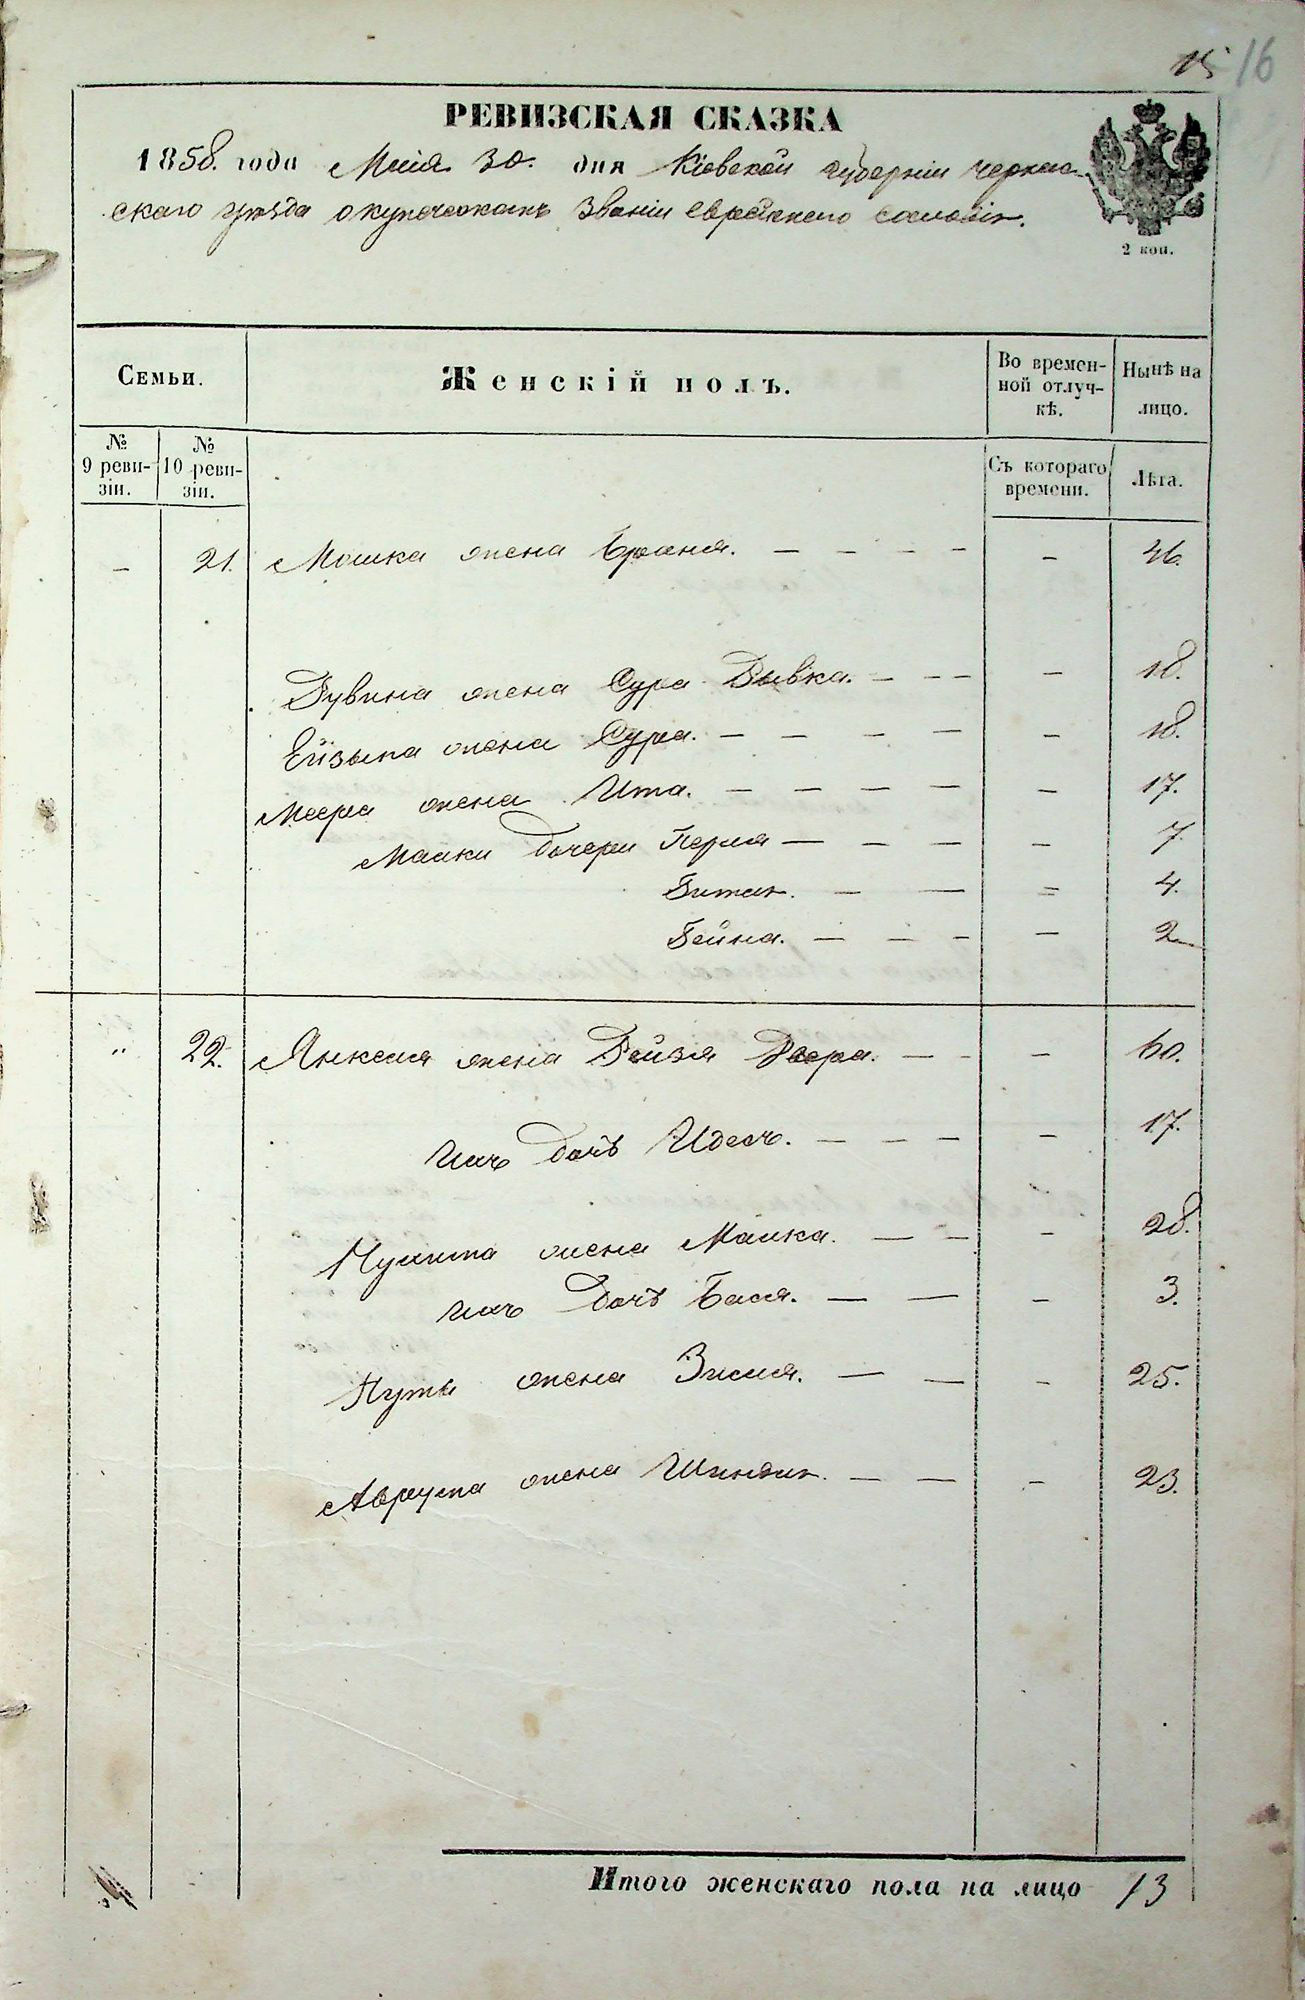 15 16
РЕВИЗСКАЯ СКАЗКА
1858. года Маія 30. дня Кіевской губерніи Черкас-
скаго уѣзда о купеческомъ званіи еврейскаго сословія.
2 коп.
Семьи.
Женскій полъ.
Во времен-
ной отлуч-
кѣ.
Нынѣ на
лицо.
№
9 реви-
зіи.
№
10 реви-
зіи.
Съ котораго
времени.
Лѣта.
— 21. Мошка жена Браня. — — — — — 46.
Дувина жена Сура Дывка. — — — — 18.
Ейзыка жена Сура. — — — — — 18.
Меера жена Ита. — — — — — 17.
Мошки дочери Перля — — — — 7.
— — = 4.
Бейна. — — — — 2
" 22. Янкеля жена Бейзя Двера. — — — 60.
Ихъ дочь Идесъ. — — — — 17.
жена Малка. — — — 28.
Ихъ дочь Бася. — — — 3.
жена Зисля. — — — 25.
Аврума жена — — — 23.
Итого женскаго пола на лицо 13